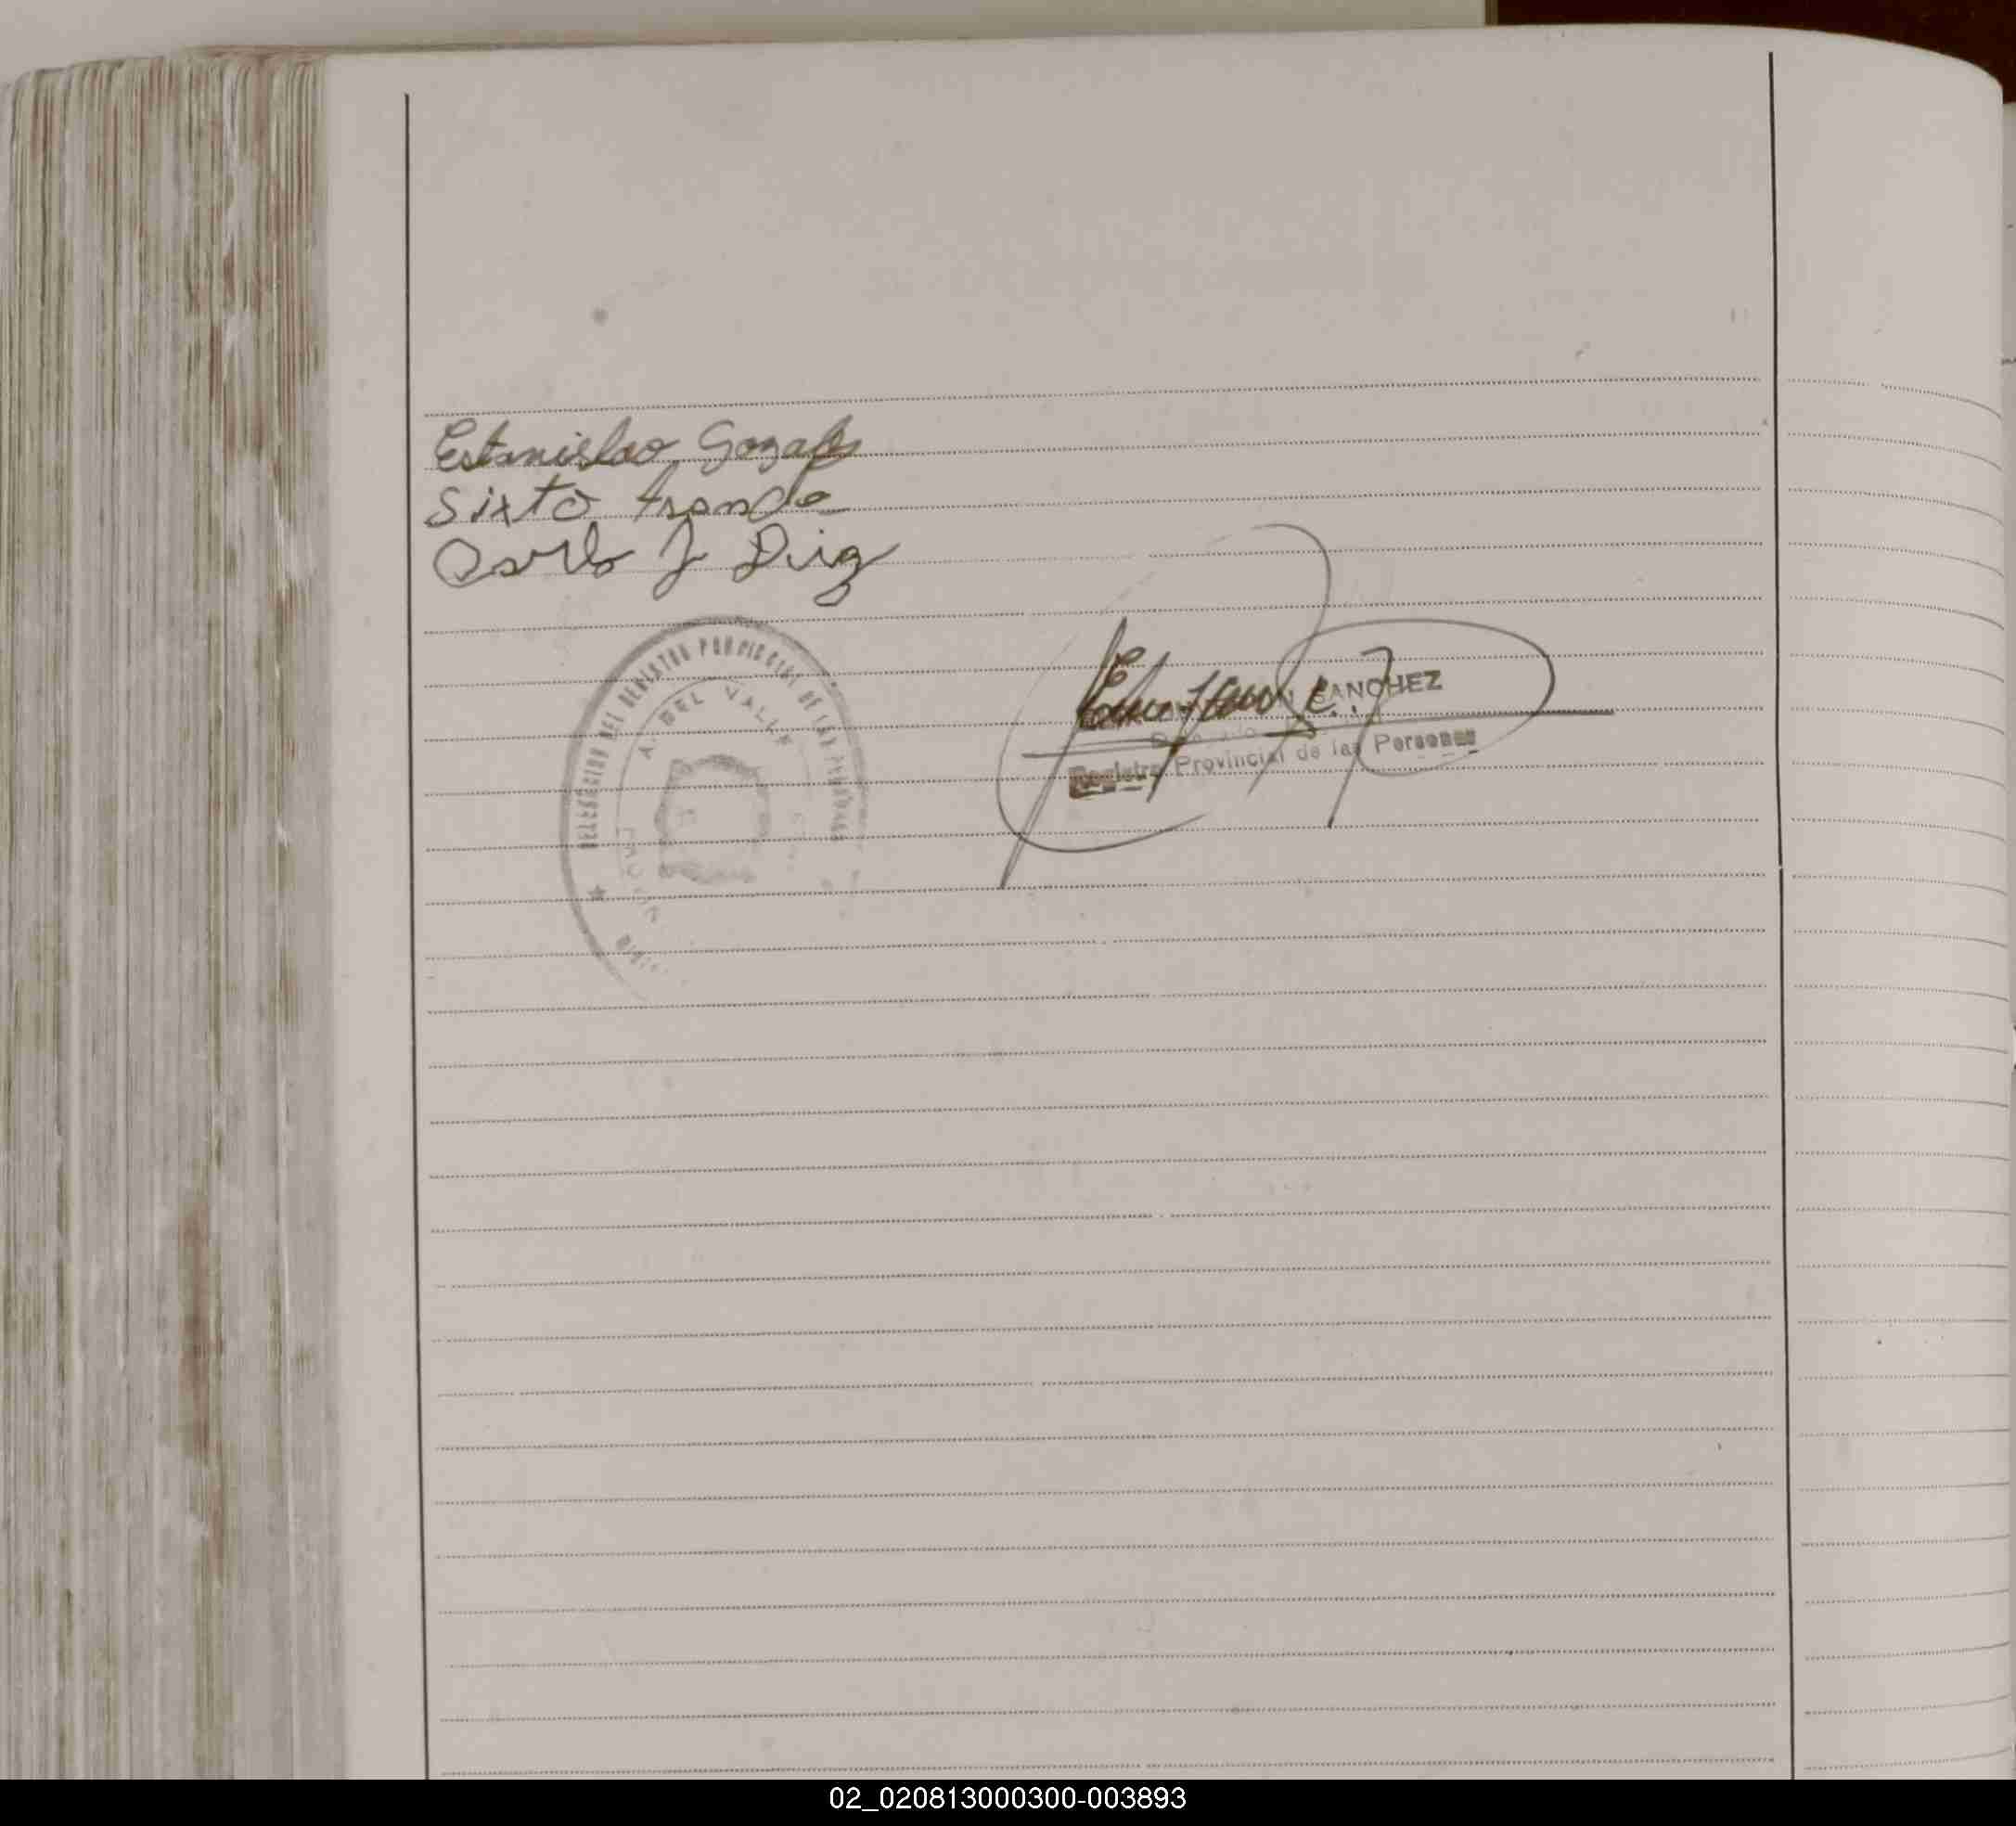 Estanislao Gozalez
Sixto Aranda
Carlo J Diaz
DEL REGISTRO PROVINCIAL DE LAS PERSONAS
A. DEL VALLE
SANCHEZ
Registro Provincial de las Personas
02_020813000300-003893